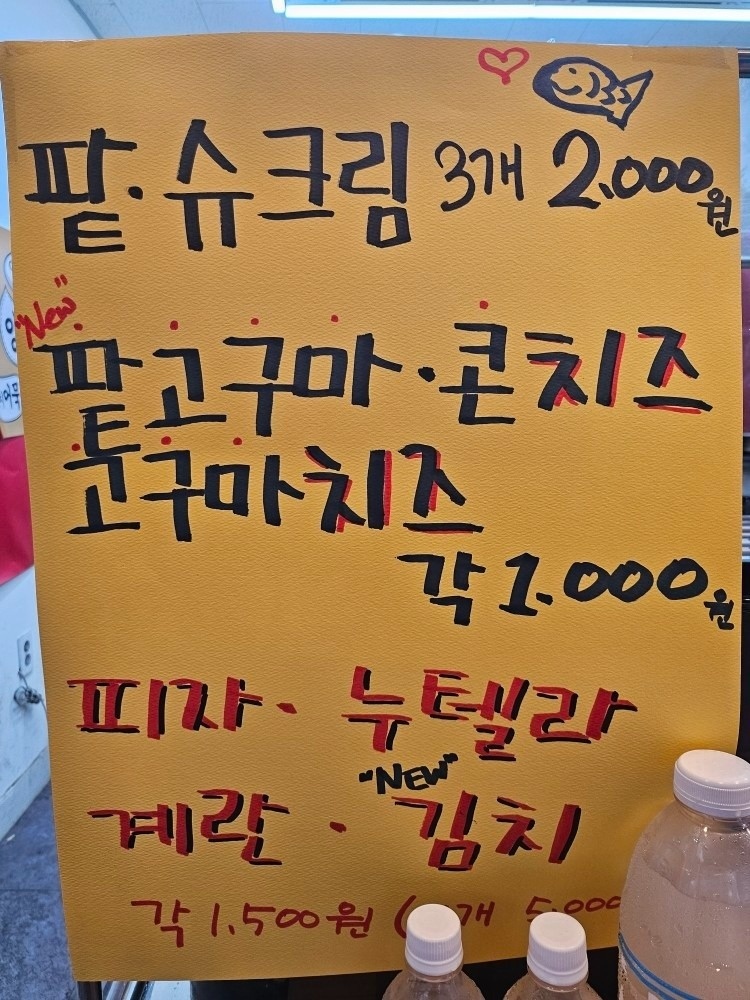 팥·슈크림 3개 2.000원
"New"
팥고구마·콘치즈
고구마치즈
각 1.000원
피자·뉴텔라
"NEW"
계란·김치
각 1.500원 ( 개 5.000